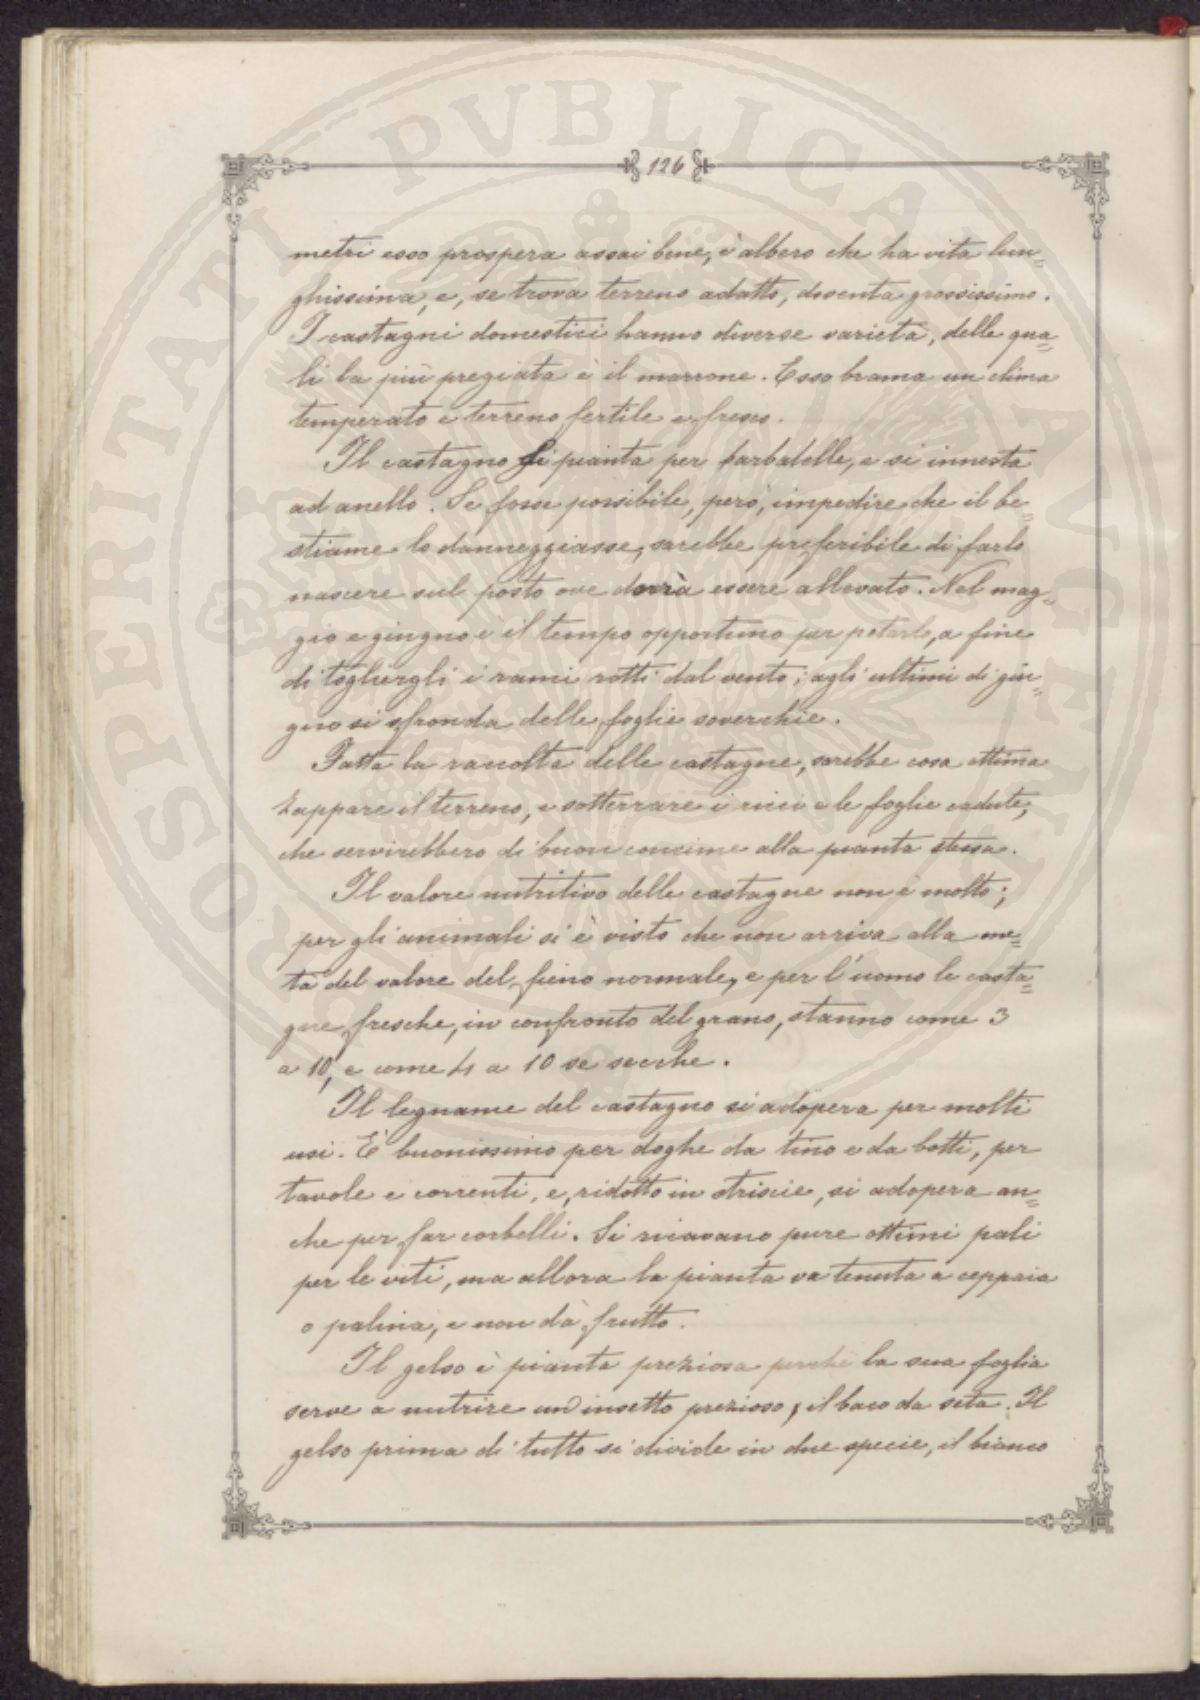 126
metri esso prospera assai bene, è albero che ha vita lun=
ghissima, e, se trova terreno adatto, doventa grossissimo.
I castagni domestici hanno diverse varietà, delle qua=
li la più pregiata è il marrone. Esso brama un clima
temperato e terreno fertile e fresco.
Il castagno si pianta per barbatelle, e si innesta
ad anello. Se fosse possibile, però, impedire che il be=
stiame lo danneggiasse, sarebbe preferibile di farlo
nascere sul posto ove dovrà essere allevato. Nel mag=
gio e giugno è il tempo opportuno per potarlo, a fine
di togliergli i rami rotti dal vento; agli ultimi di giu=
gno si sfronda delle foglie soverchie.
Fatta la raccolta delle castagne, sarebbe cosa ottima
zappare il terreno, e sotterrare i ricci e le foglie cadute,
che servirebbero di buon concime alla pianta stessa.
Il valore nutritivo delle castagne non è molto;
per gli animali si è visto che non arriva alla me=
tà del valore del fieno normale, e per l'uomo le casta=
gne fresche, in confronto del grano, stanno come 3
a 10, e come 4 a 10 se secche.
Il legname del castagno si adopera per molti
usi. È buonissimo per doghe da tino e da botti, per
tavole e correnti, e, ridotto in striscie, si adopera an=
che per far corbelli. Si ricavano pure ottimi pali
per le viti, ma allora la pianta va tenuta a ceppaia
o palina, e non dà frutto.
Il gelso è pianta preziosa perchè la sua foglia
serve a nutrire un insetto prezioso, il baco da seta. Il
gelso prima di tutto si divide in due specie, il bianco
PROSPERITATI PVBLICAE AVGENDAE